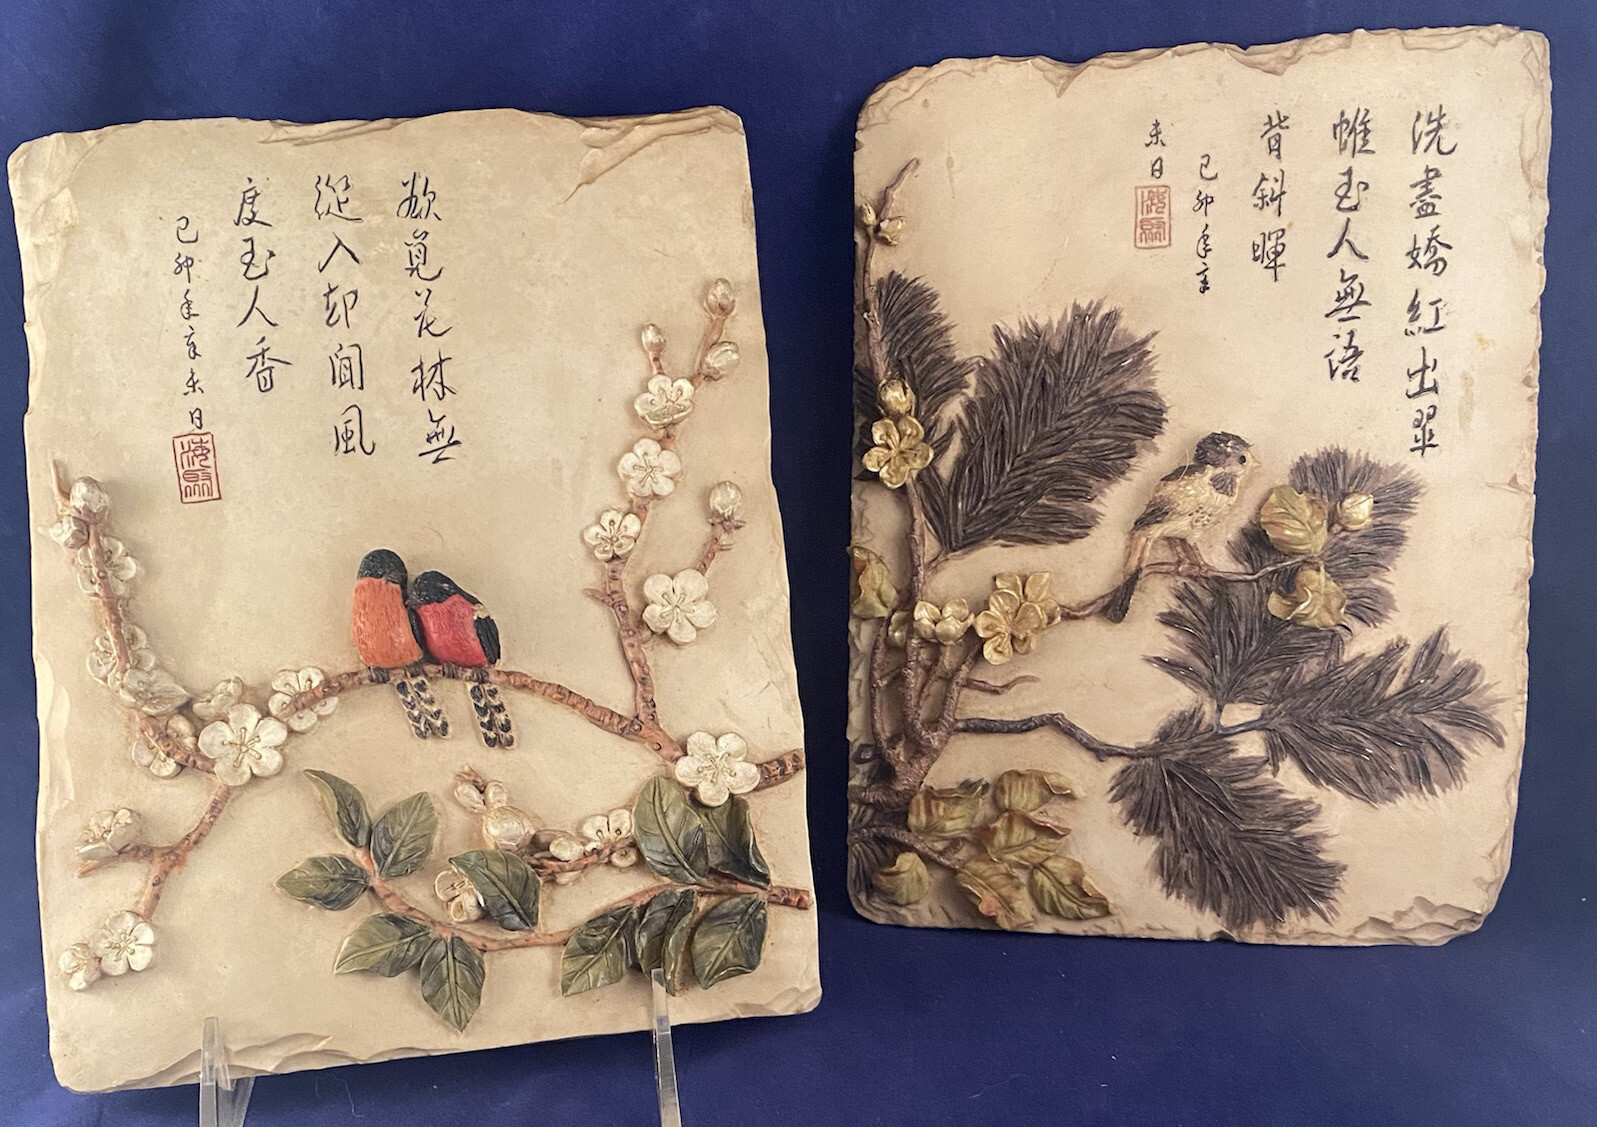 欲覓花林無
從入却聞風
度玉人香
己卯年辛未日
洗盡嬌紅出翠
帷玉人無語
背斜暉
己卯年辛
未日